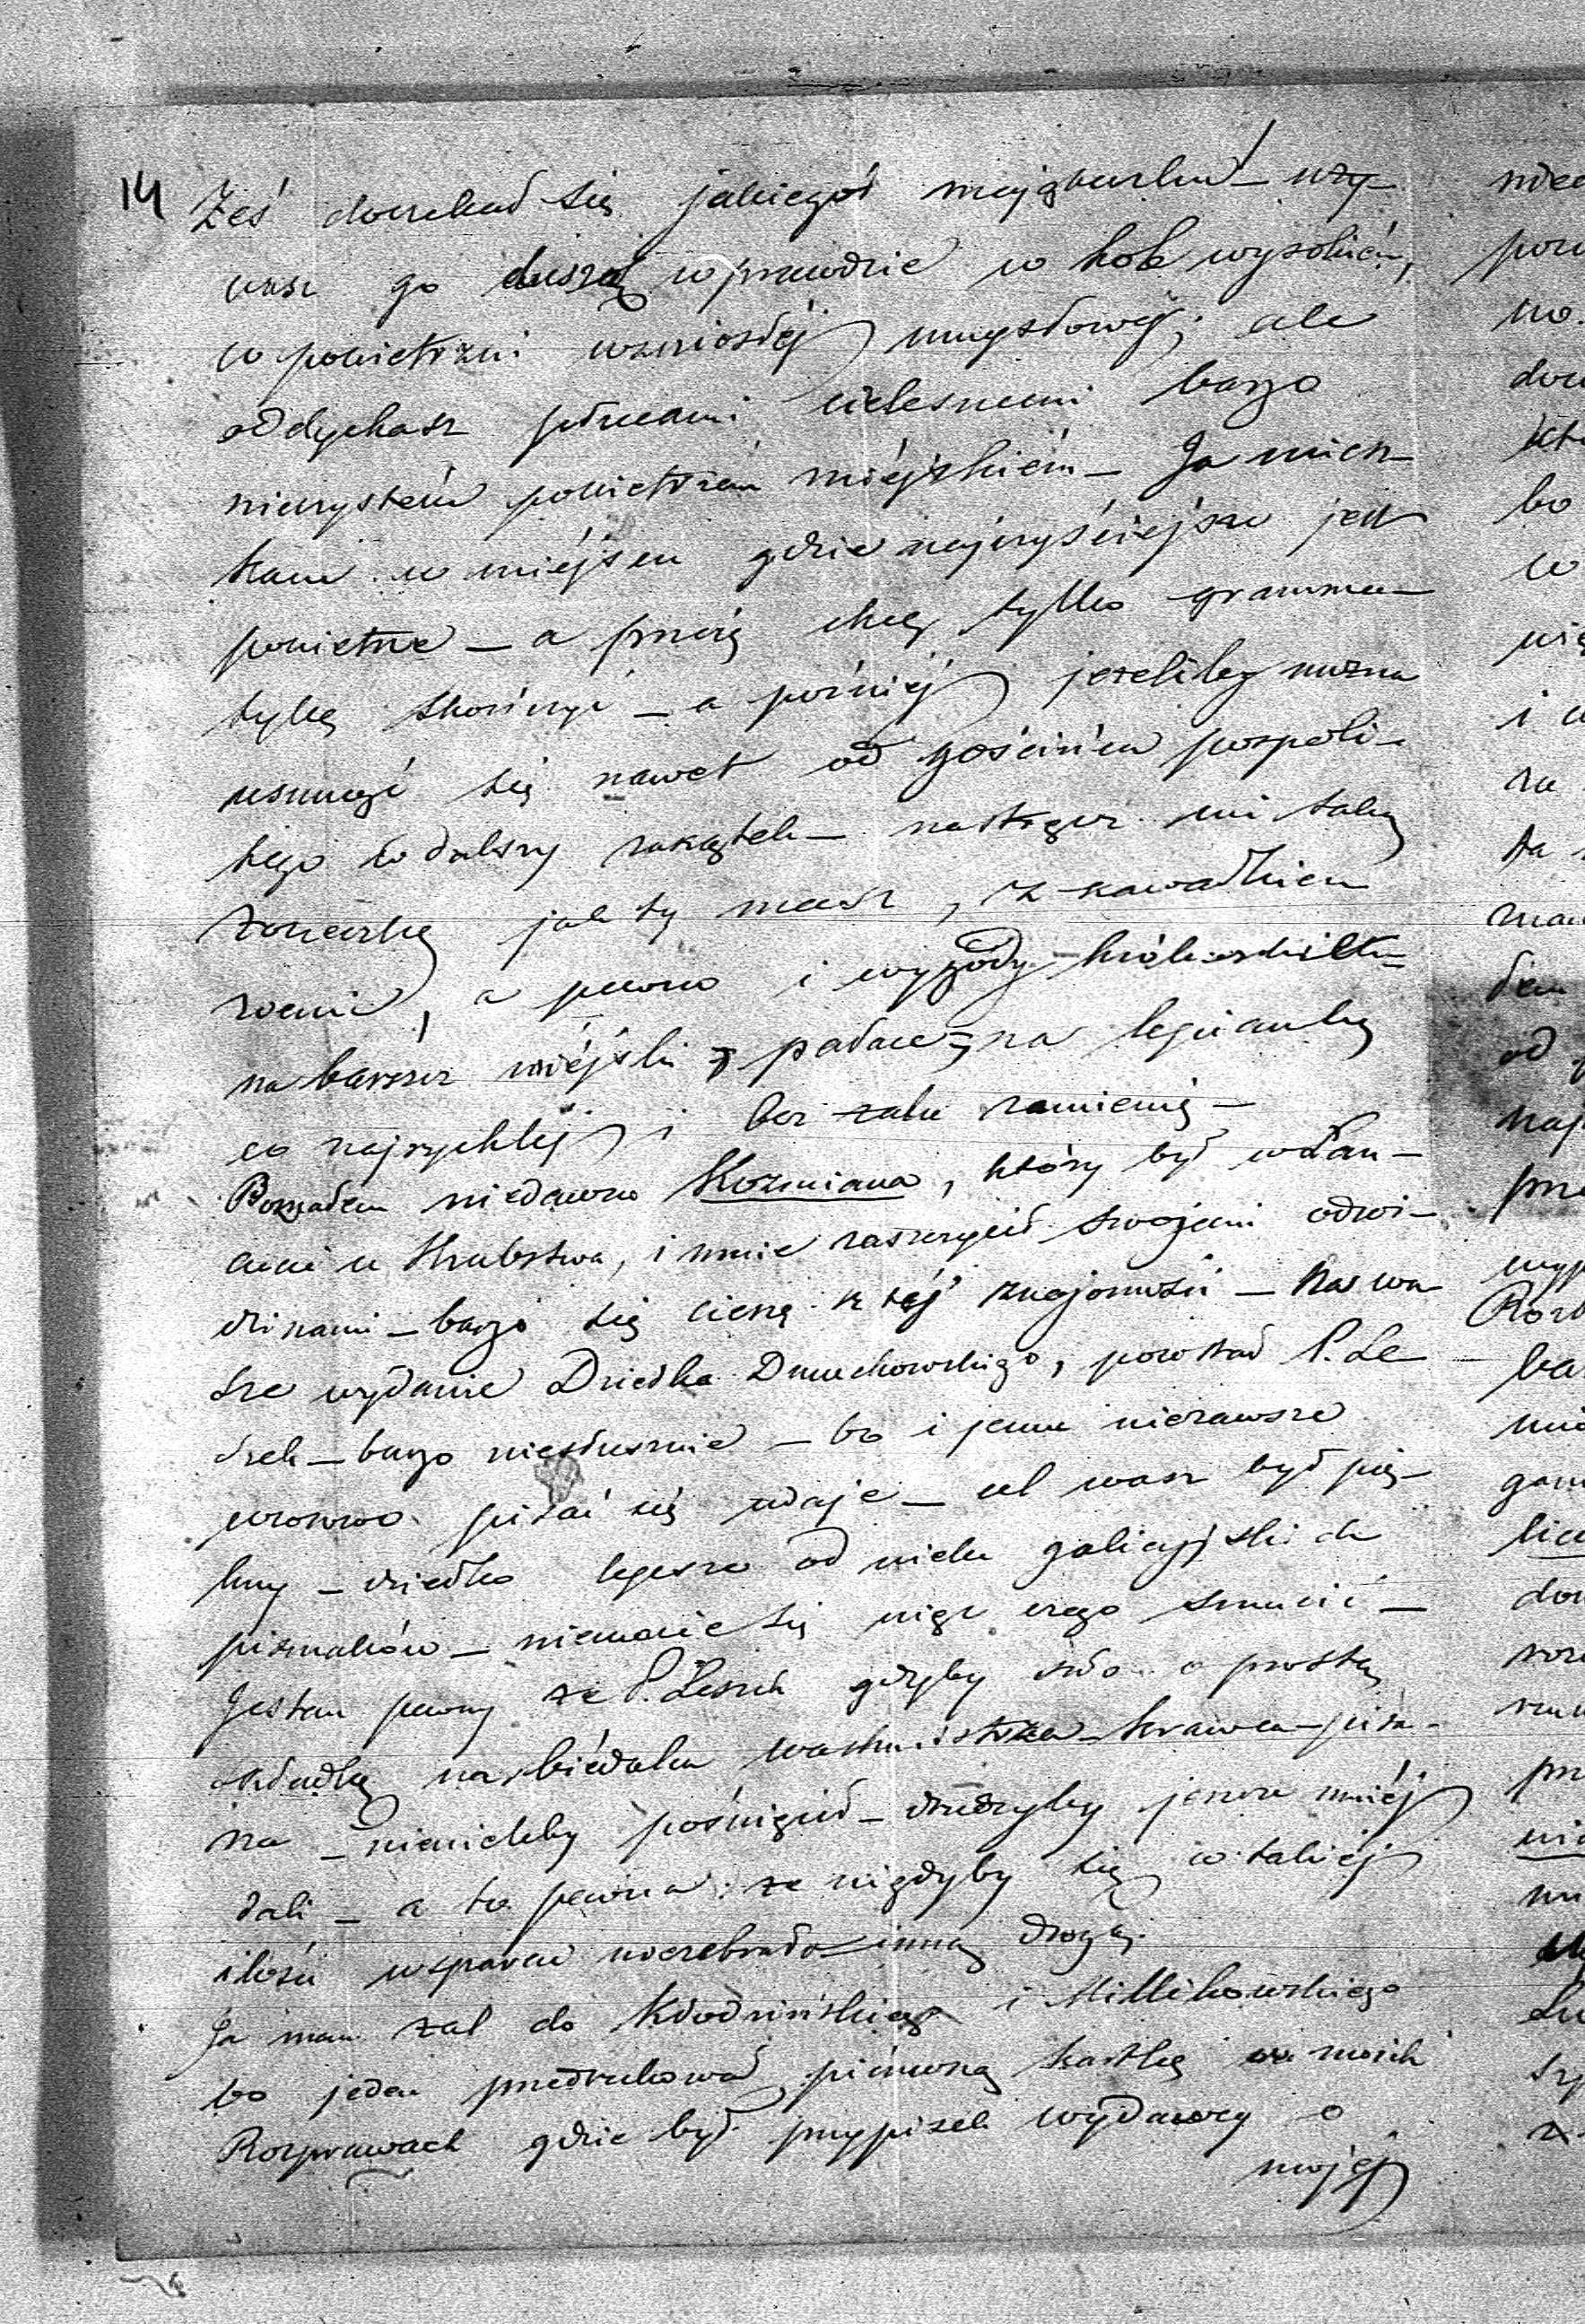 14
Żeś doczekał się jakiegoś mająteczku – uży–
wasz go duszą wprawdzie w kole wysokiém,
w powietrzni wzniosłéj umysłowéj; ale
oddychasz płucami cielesnemi barzo
nieczystém powietrzem miéjskiém – Ja miesz–
kam w miéjscu gdzie najczyściéjsze jest
powietrze – a przecię chcę tylko gramma–
tykę skończyć – a poźniéj jeżeliby można
usunąć się nawet od gościńca pospoli–
tego w dalszy zakątek – nastręcz mi taką
żoneczkę jak ty masz, z kawałkiem
ziemi, a pewno i wygody
na barszcz wiéjski, pałace na lepiankę
co najrychléj i bez żalu zamienię –
Poznałem niedawno Kozmiana, który był w Łań–
cucie u Hrabstwa, i mnie zaszczycił swojemi odwi–
dzinami – barzo się cieszę z téj znajomości – Na wa
sze wydanie Dziełka Dmuchowskiego, powstał P. Le
szek – barzo niesłusznie – bo i jemu niezawsze
wzorowo pisać się udaje – cel wasz był pię–
kny – dziełko lepsze od wielu galicyjskich
pismaków – niemacie się więc czego smucić –
Jestem pewny że P. Leszek gdyby szło o prostą
składkę na biédaka wachmistrza – krawca – pisa–
na – niewieleby pościągnął – drudzyby jeszcze mniéj
dali – a to pewna: że nigdyby się w takiéj
ilości wsparcie niezebrało inną drogą.
Ja mam żal do Kłodzińskiego i Millikowskiego
bo jeden przedrukował piérwszą kartkę w moich
Rozprawach gdzie był przypisek wydawcy o
mojéj